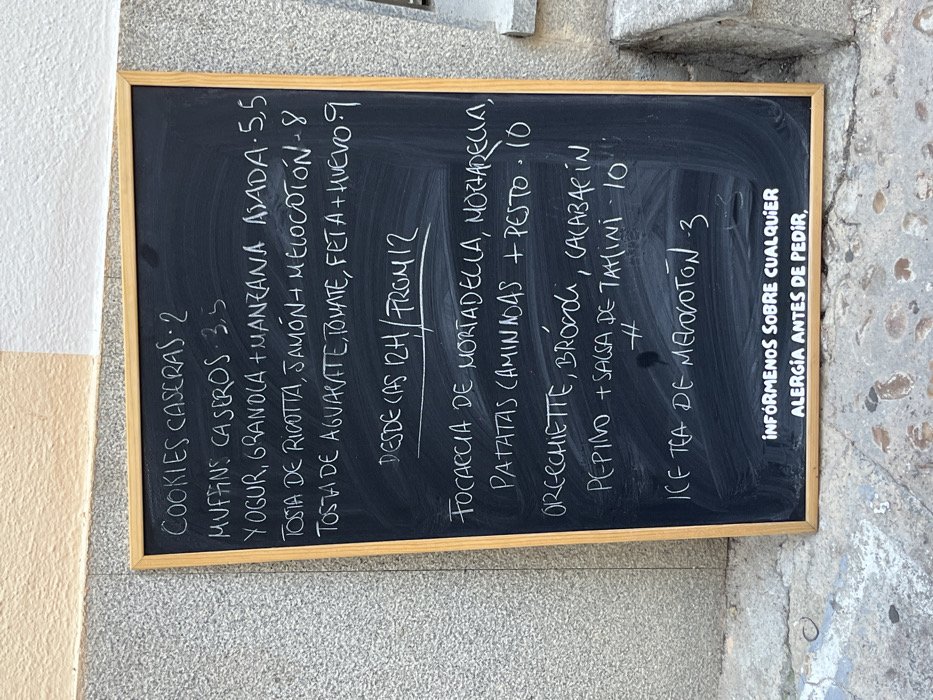 COOKIES CASERAS · 2
MUFFINS CASEROS · 3.5
YOGUR, GRANOLA + MANZANA ASADA · 5,5
TOSTA DE RICOTTA, JAMÓN + MELOCOTÓN · 8
TOSTA DE AGUACATE, TOMATE, FETA + HUEVO · 9
DESDE LAS 12H / FROM 12
FOCACCIA DE MORTADELLA, MOZZARELLA,
PATATAS CAMINADAS + PESTO · 10
ORECCHIETTE, BRÓCOLI, CALABACÍN
PEPINO + SALSA DE TAHINI · 10
ICE TEA DE MELOCOTÓN · 3
INFÓRMENOS SOBRE CUALQUIER
ALERGIA ANTES DE PEDIR,